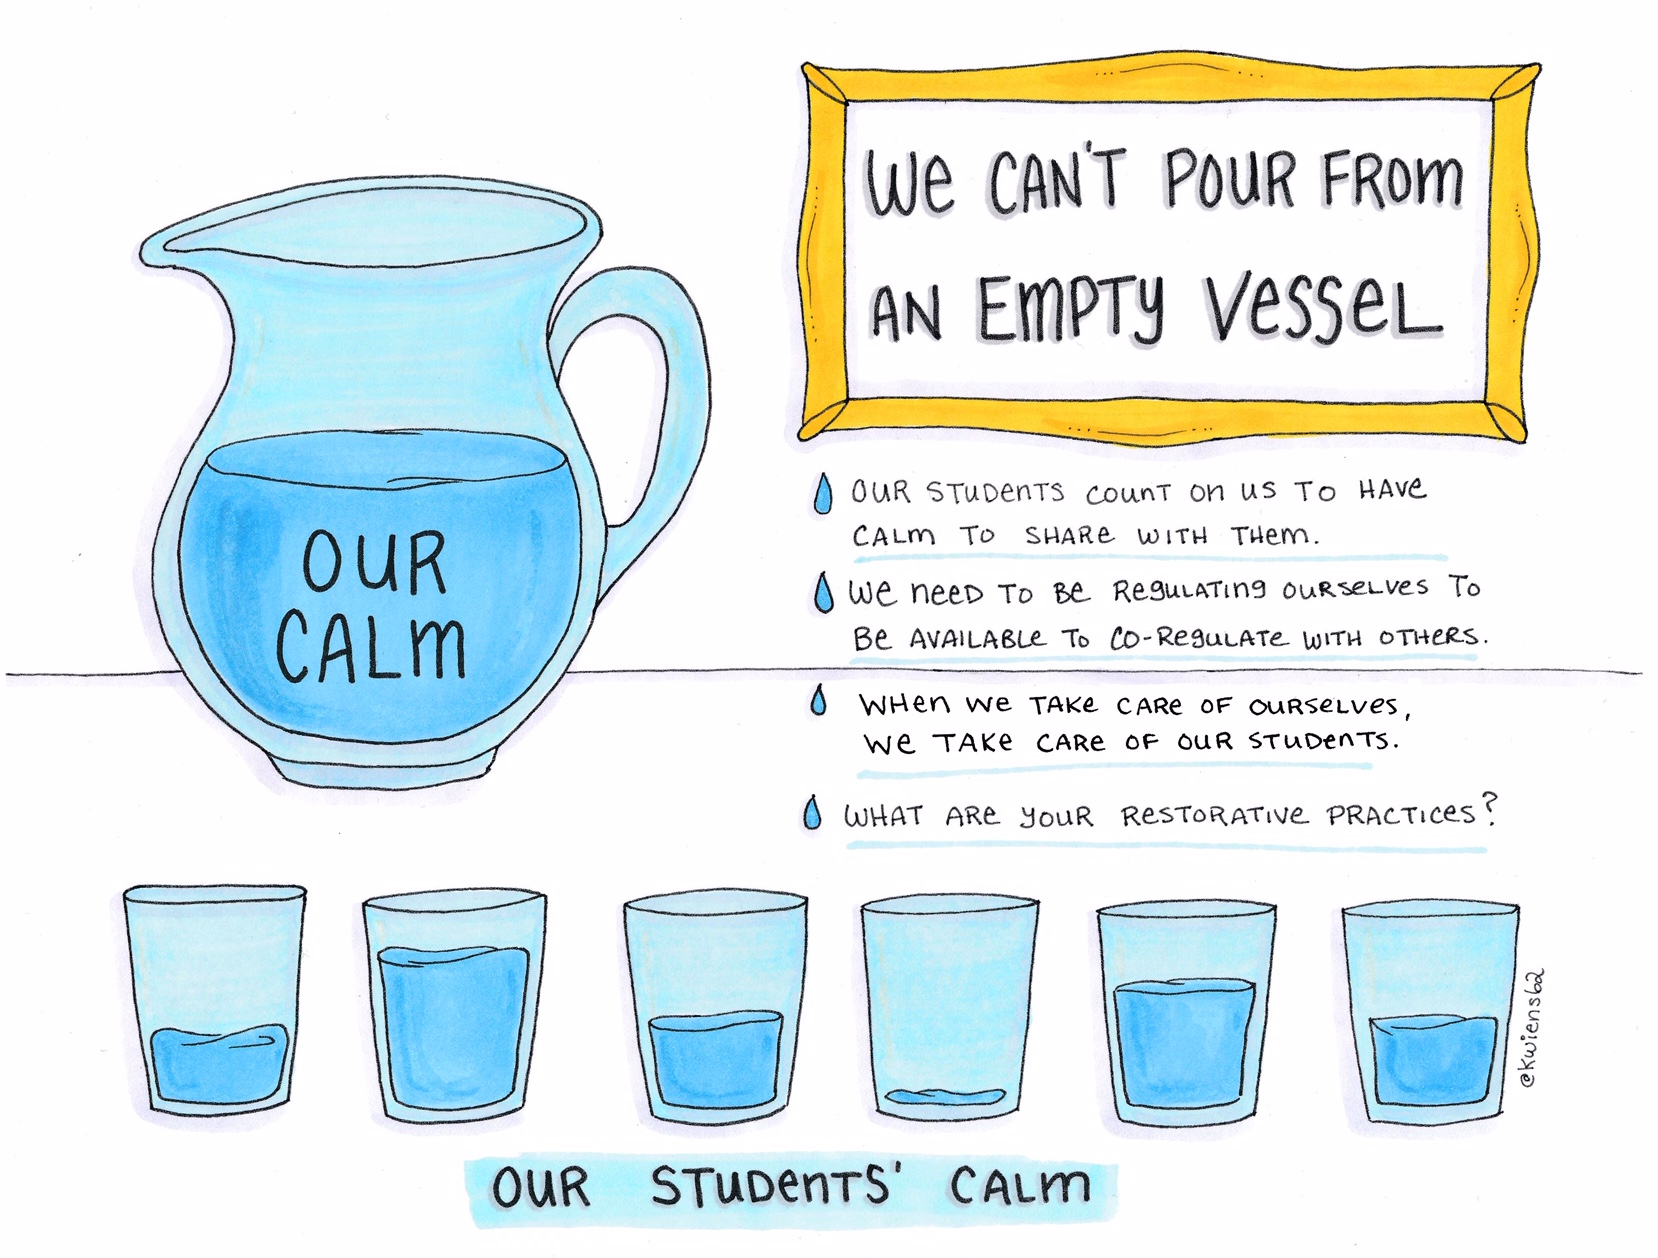 WE CAN'T POUR FROM
AN EMPTY VESSEL
OUR CALM
OUR STUDENTS COUNT ON US TO HAVE
CALM TO SHARE WITH THEM.
WE NEED TO BE REGULATING OURSELVES TO
BE AVAILABLE TO CO-REGULATE WITH OTHERS.
WHEN WE TAKE CARE OF OURSELVES,
WE TAKE CARE OF OUR STUDENTS.
WHAT ARE YOUR RESTORATIVE PRACTICES?
@kwiens62
OUR STUDENTS' CALM